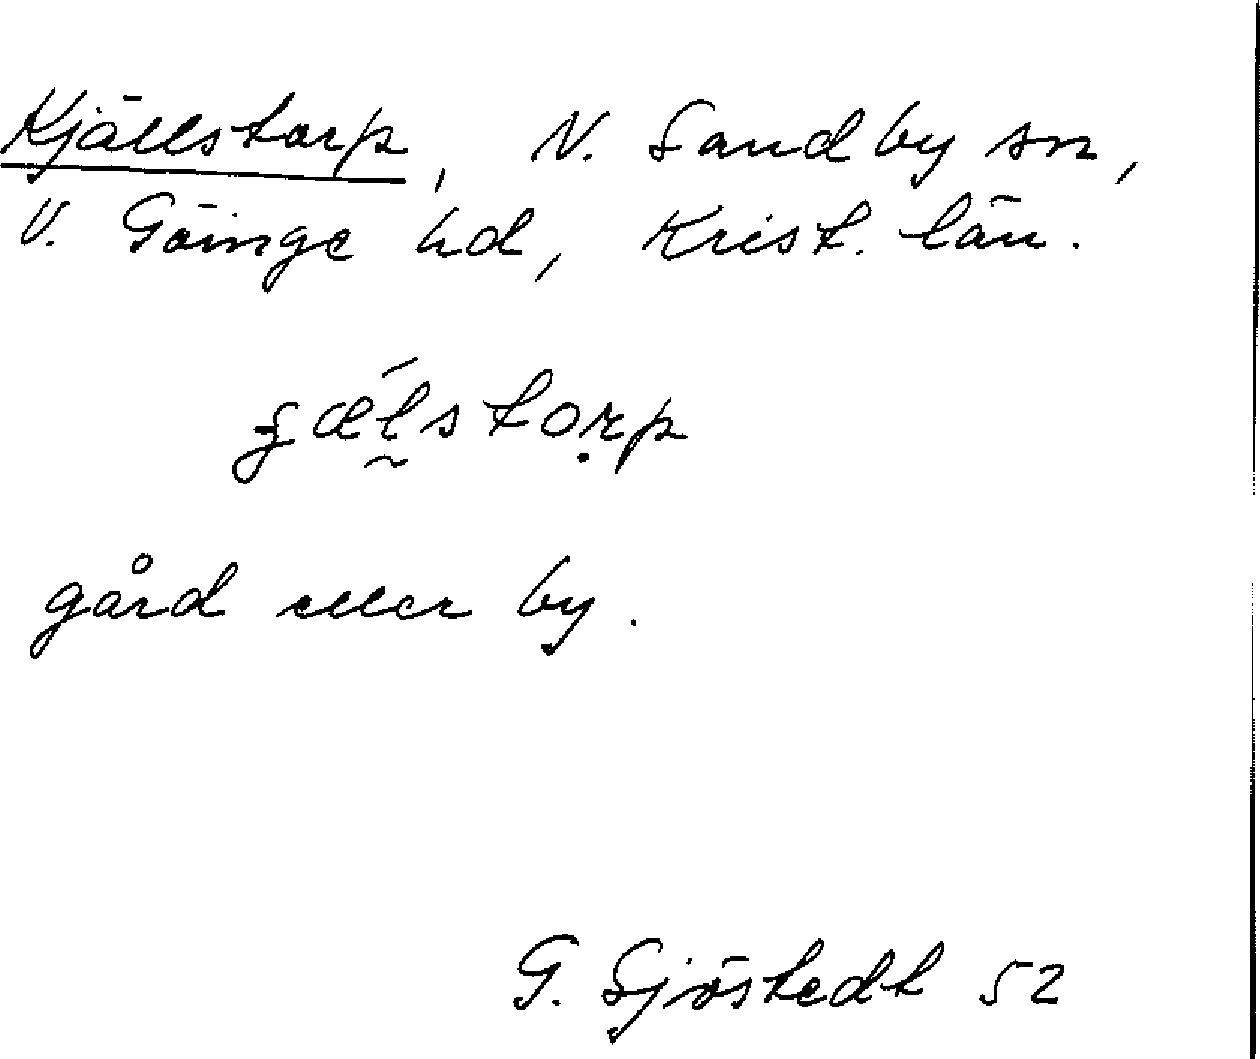 Kjällstorp, N. Sandby sn,
V. Göinge hd, Krist. län.
gård eller by.
G. Sjöstedt 52